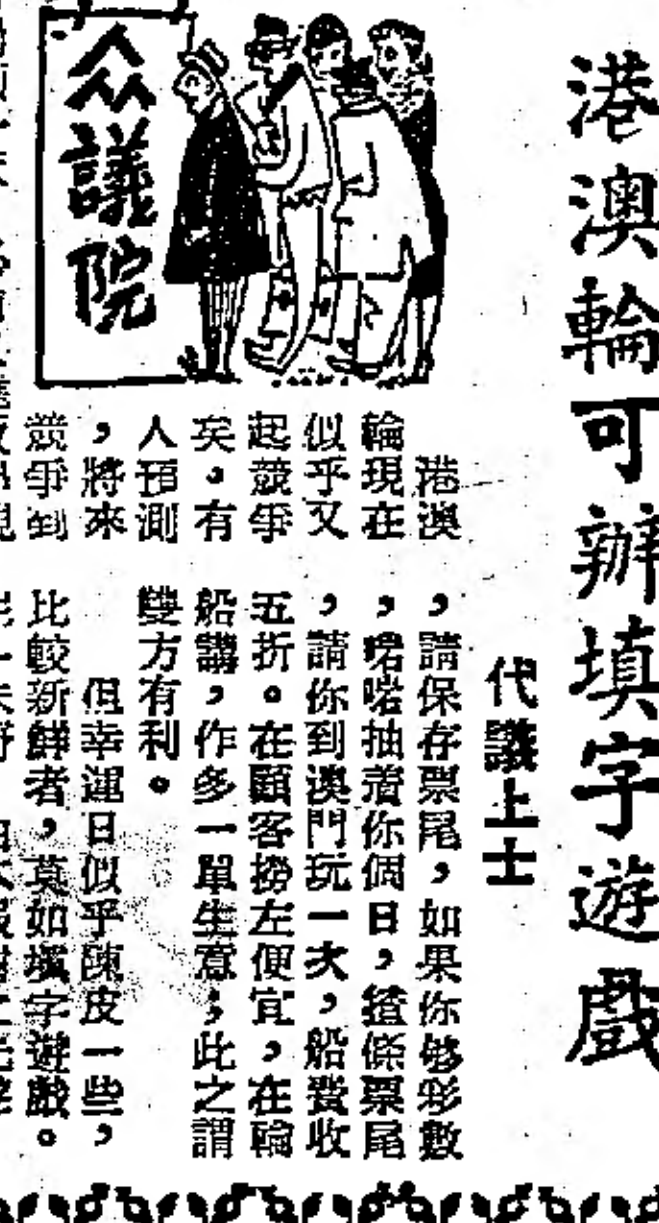 港澳輪可辦填字遊戲
代議上士
众議院
港澳
輪現在
似乎又
起競爭
矣。有
人預測
，將來
競爭到
，請保存票尾，如果你够彩數
，啱啱抽着你個日，揸條票尾
，請你到澳門玩一次，船費收
五折。在顧客撈左便宜，在輪
船講，作多一單生意；此之謂
雙方有利。
但幸運日似乎陳皮一些，
比較新鮮者，莫如填字遊戲。